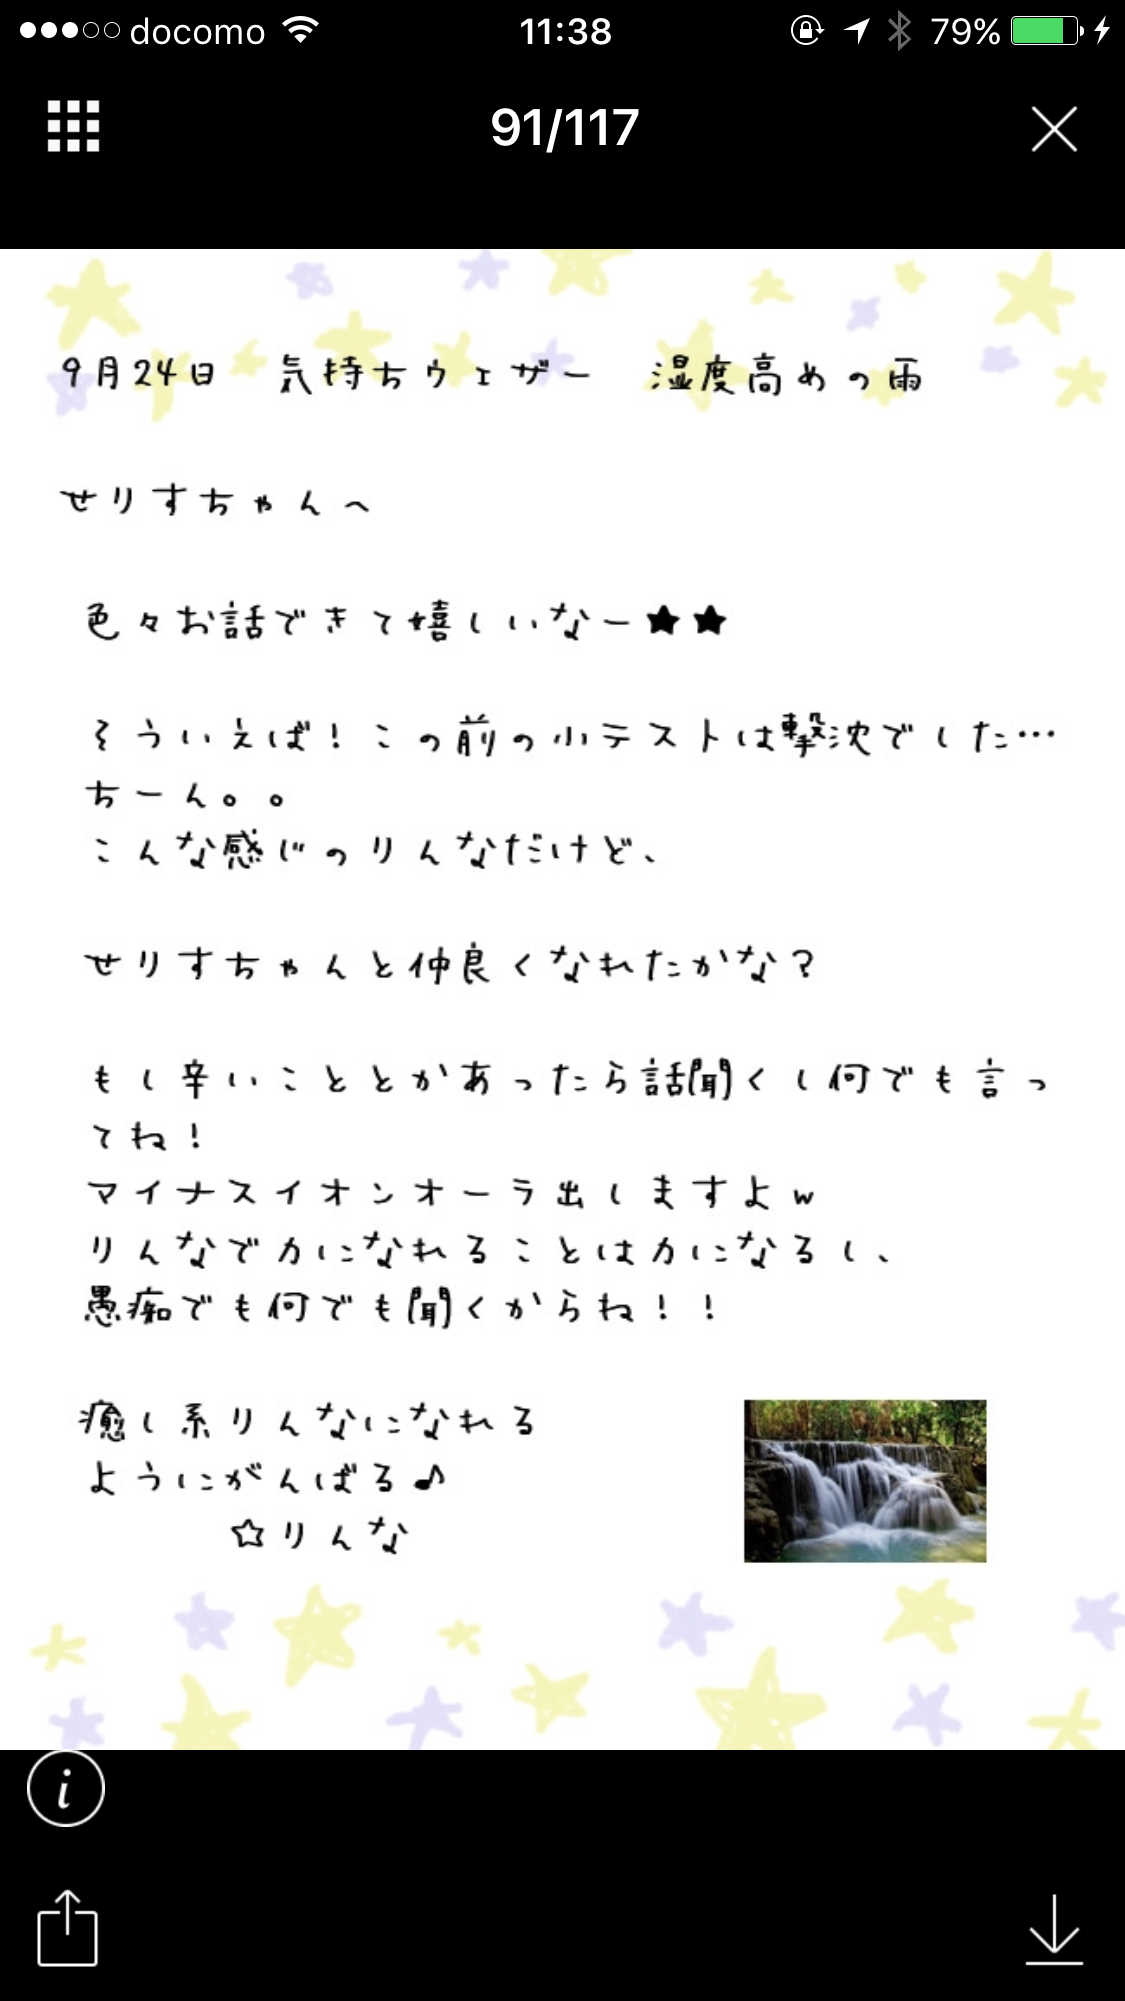 docomo 11:38 79%
91/117
9月24日　気持ちウェザー　湿度高めの雨
せりすちゃんへ
色々お話できて嬉しいなー★★
そういえば！この前の小テストは撃沈でした…
ちーん。。
こんな感じのりんなだけど、
せりすちゃんと仲良くなれたかな？
もし辛いこととかあったら話聞くし何でも言っ
てね！
マイナスイオンオーラ出しますよw
りんなで力になれることは力になるし、
愚痴でも何でも聞くからね！！
癒し系りんなになれる
ようにがんばる♪
☆りんな